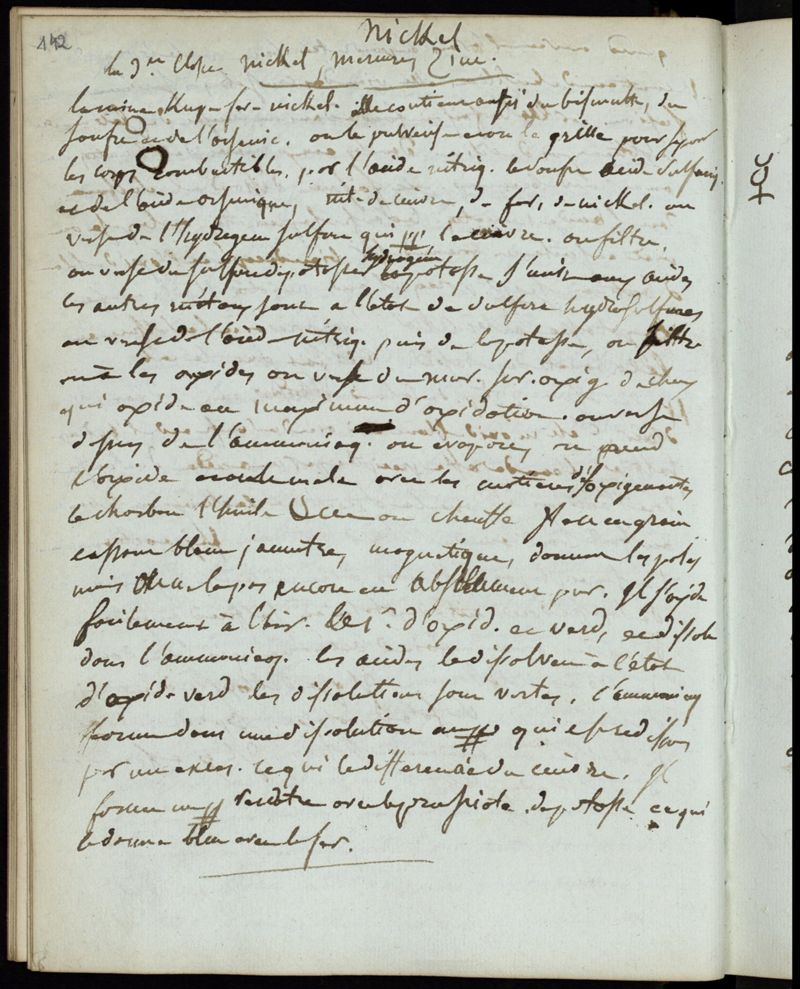 142
Nickel
la 3me Classe nickel, mercure, Zinc.
la mine Kupfer-nickel. Elle contient aussi du bismuth, du
soufre et de l'arsenic. on la pulverise on la grille pour
les corps combustibles. par l'acide nitriq. le soufre acide
et de l'acide arsenique, nit. de cuivre, de fer, de nickel. on
verse de l'hydrogene sulfuré qui le cuivre. on filtre,
on verse du sulfure de potasse hydrogéné la potasse s'unit aux acides
les autres métaux sont a l'état de sulfure hydrosulfures
on verse de l'acide nitriq. puis de la potasse, on filtre
les oxides on verse du mur. sur. oxig. de chaux
qui oxide au maximum d'oxidation. on verse
dessus de l'ammoniaq. on evapore, on prend
l'oxide avec les matieres désoxigenantes
le charbon l'huile on chauffe
blanc jaunatre, magnetique, donnant les pôles
mais on ne l'a pas encore eu absolument pur. Il s'oxide
facilement à l'air. Le 1er d'oxid. est verd, se dissout
dans l'ammoniaq. les acides le dissolvent à l'état
d'oxide verd les dissolutions sont vertes. l'ammoniaq
forme dans une dissolution un qui est redissous
par un exces. ce qui le differencie du cuivre. Il
forme un verdatre avec le prussiate de potasse ce qui
le donne bleu avec le fer.